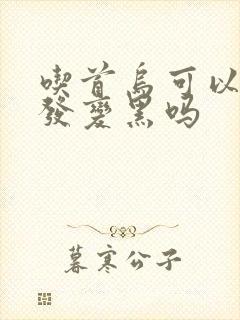 喫首烏可以
發變黑嗎
暮寒公子